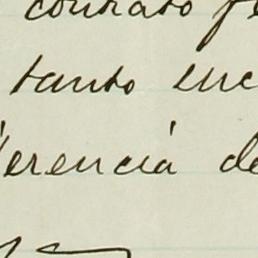 contrato
tanto
erencia de